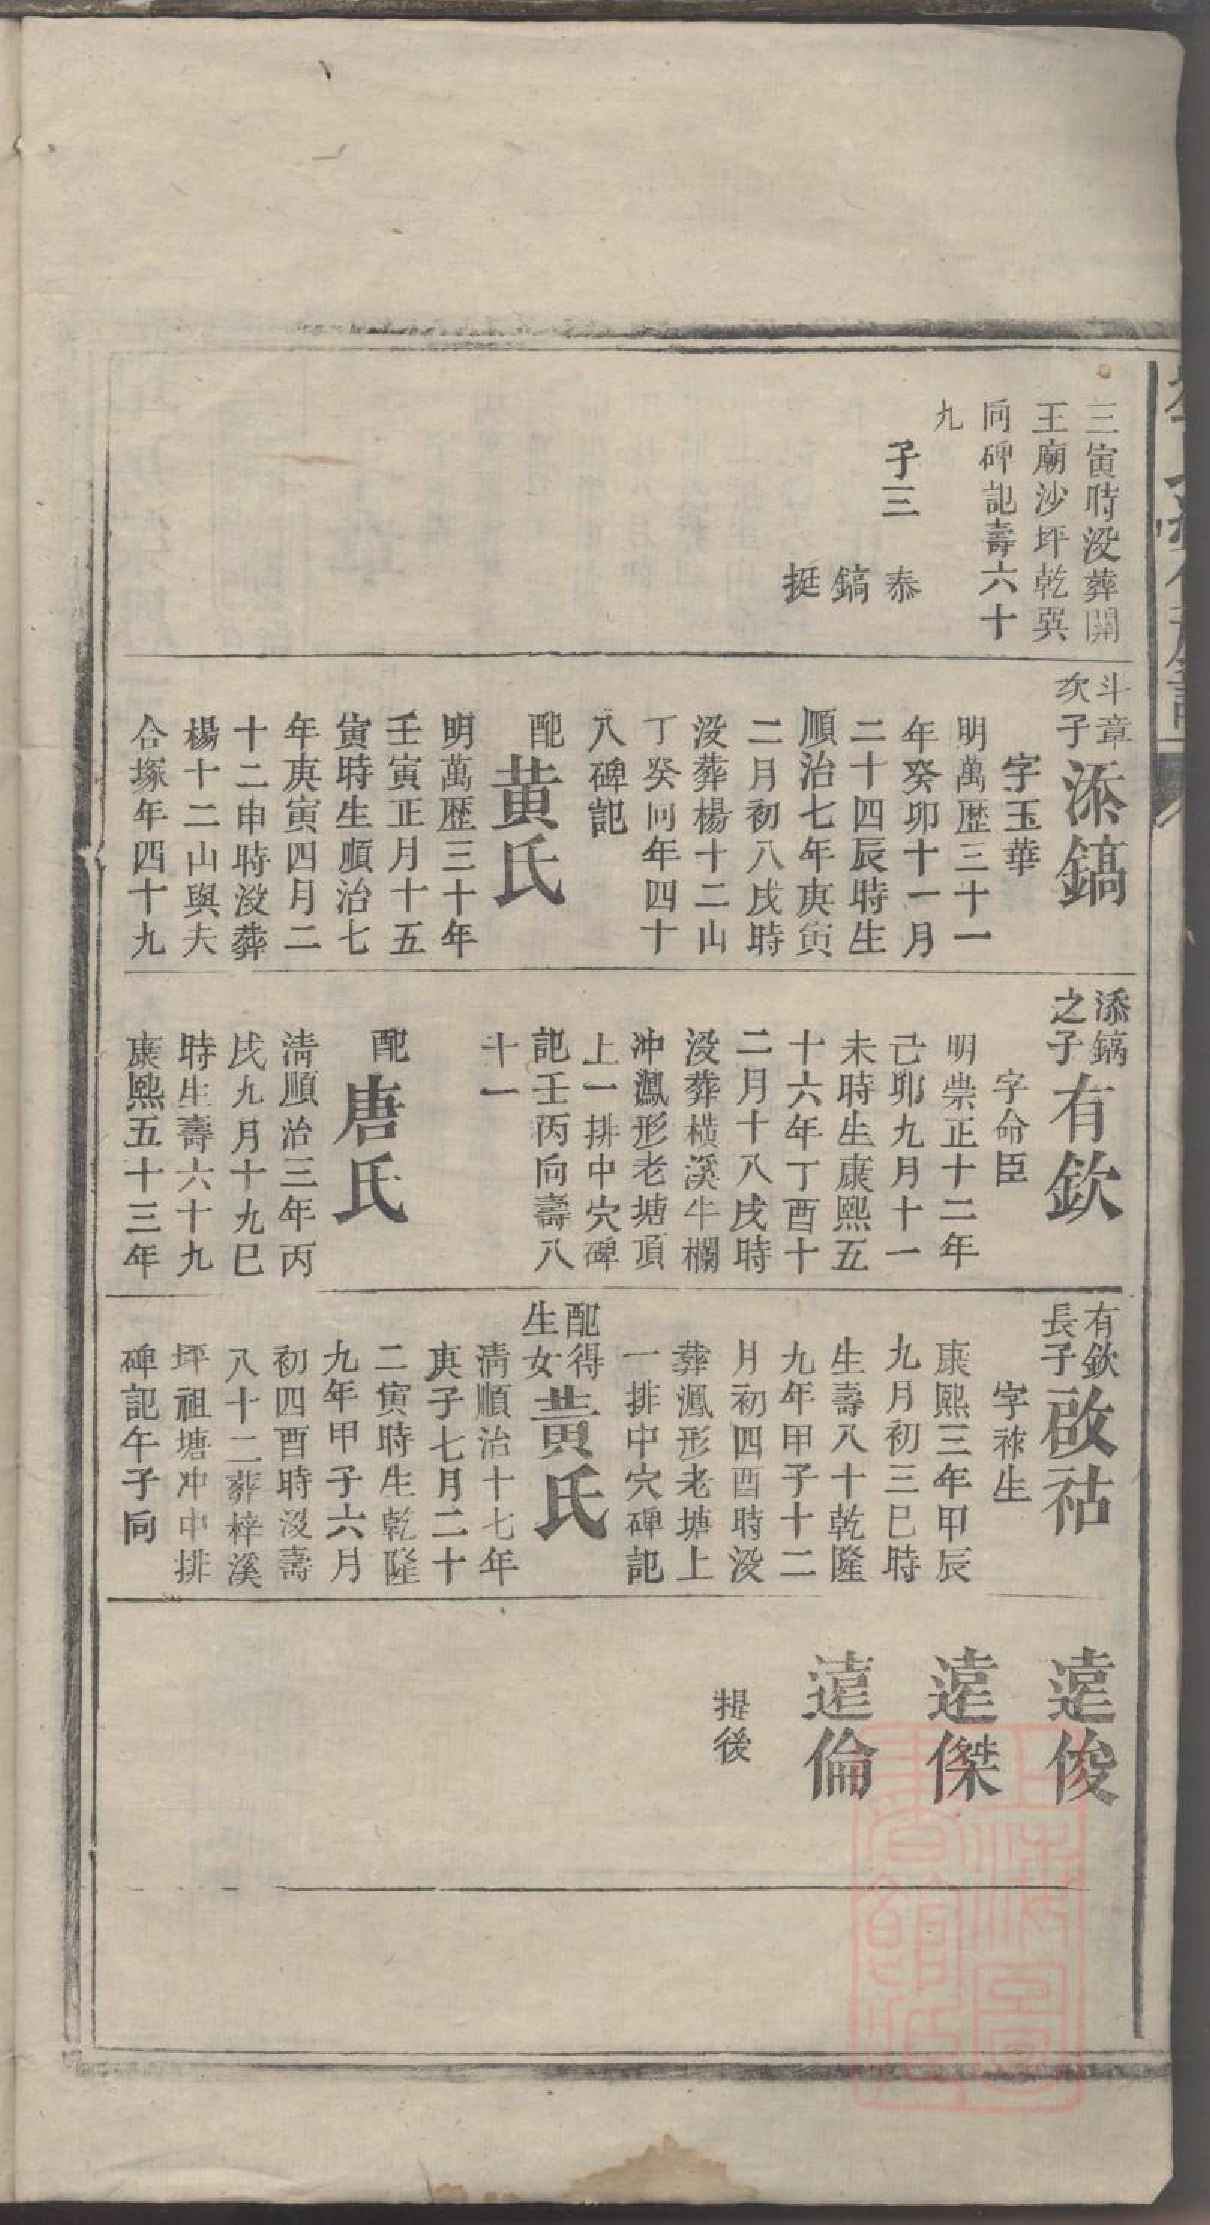 三寅時没葬開
王廟沙坪乾巽
向碑記壽六十
九
子三
泰
鎬
挺
斗章
次子
添鎬
字玉華
明萬歷三十一
年癸卯十一月
二十四辰時生
順治七年庚寅
二月初八戌時
没葬楊十二山
丁癸向年四十
八碑記
配
黄氏
明萬歷三十年
壬寅正月十五
寅時生順治七
年庚寅四月二
十二申時没葬
楊十二山與夫
合塚年四十九
添鎬
之子
有欽
字命臣
明崇正十二年
己卯九月十一
未時生康熙五
十六年丁酉十
二月十八戌時
没葬橫溪牛欄
冲鳳形老塘頂
上一排中穴碑
記壬丙向壽八
十一
配
唐氏
清順治三年丙
戌九月十九巳
時生壽六十九
康熙五十三年
有欽
長子
啟祜
字祚生
康熙三年甲辰
九月初三巳時
生壽八十乾隆
九年甲子十二
月初四酉時没
葬鳳形老塘上
一排中穴碑記
配得
生女
黄氏
清順治十七年
庚子七月二十
二寅時生乾隆
九年甲子六月
初四酉時没壽
八十二葬梓溪
坪祖塘冲中排
碑記午子向
遠俊
遠傑
遠倫
提後
上海圖
書館藏